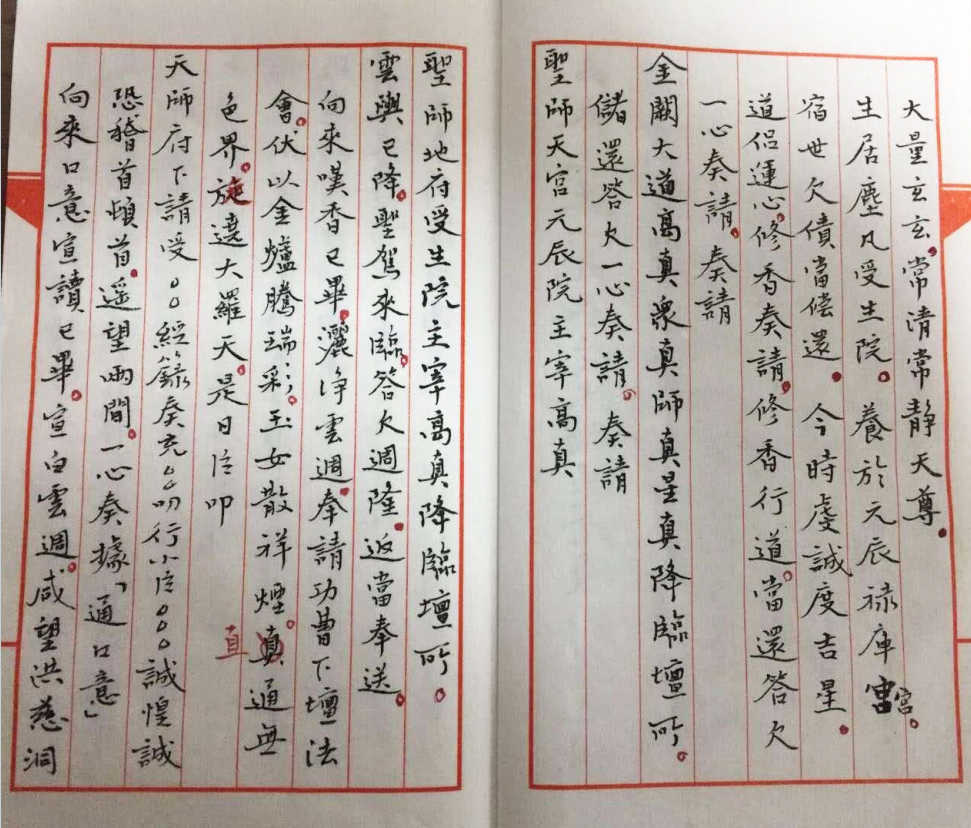 大量玄玄。常清常靜天尊。
生居塵凡受生院。養於元辰祿庫宮宮。
宿世欠債當償還。今時虔誠度吉星。
道侶運心。修香奏請。修香行道。當還答欠
一心奏請。奏請
金闕大道高真衆真師真星真降臨壇所。
儲還答欠一心奏請。奏請
聖師天官元辰院主宰高真
聖師地府受生院主宰高真降臨壇所。
雲輿已降。聖駕來臨。答欠週隆。返當奉送。
向來嘆香已畢。灑淨雲週。奉請功曹下壇法
會。伏以金爐騰瑞彩。玉女散祥煙。真直通無
色界。旋遶大羅天。是日臣叩
天師府下請受○○經籙奏充厶叨行小臣○○○誠惶誠
恐稽首頓首。遥望兩間。一心奏據「通口意」
向來口意宣讀已畢。宣白雲週。咸望洪慈洞